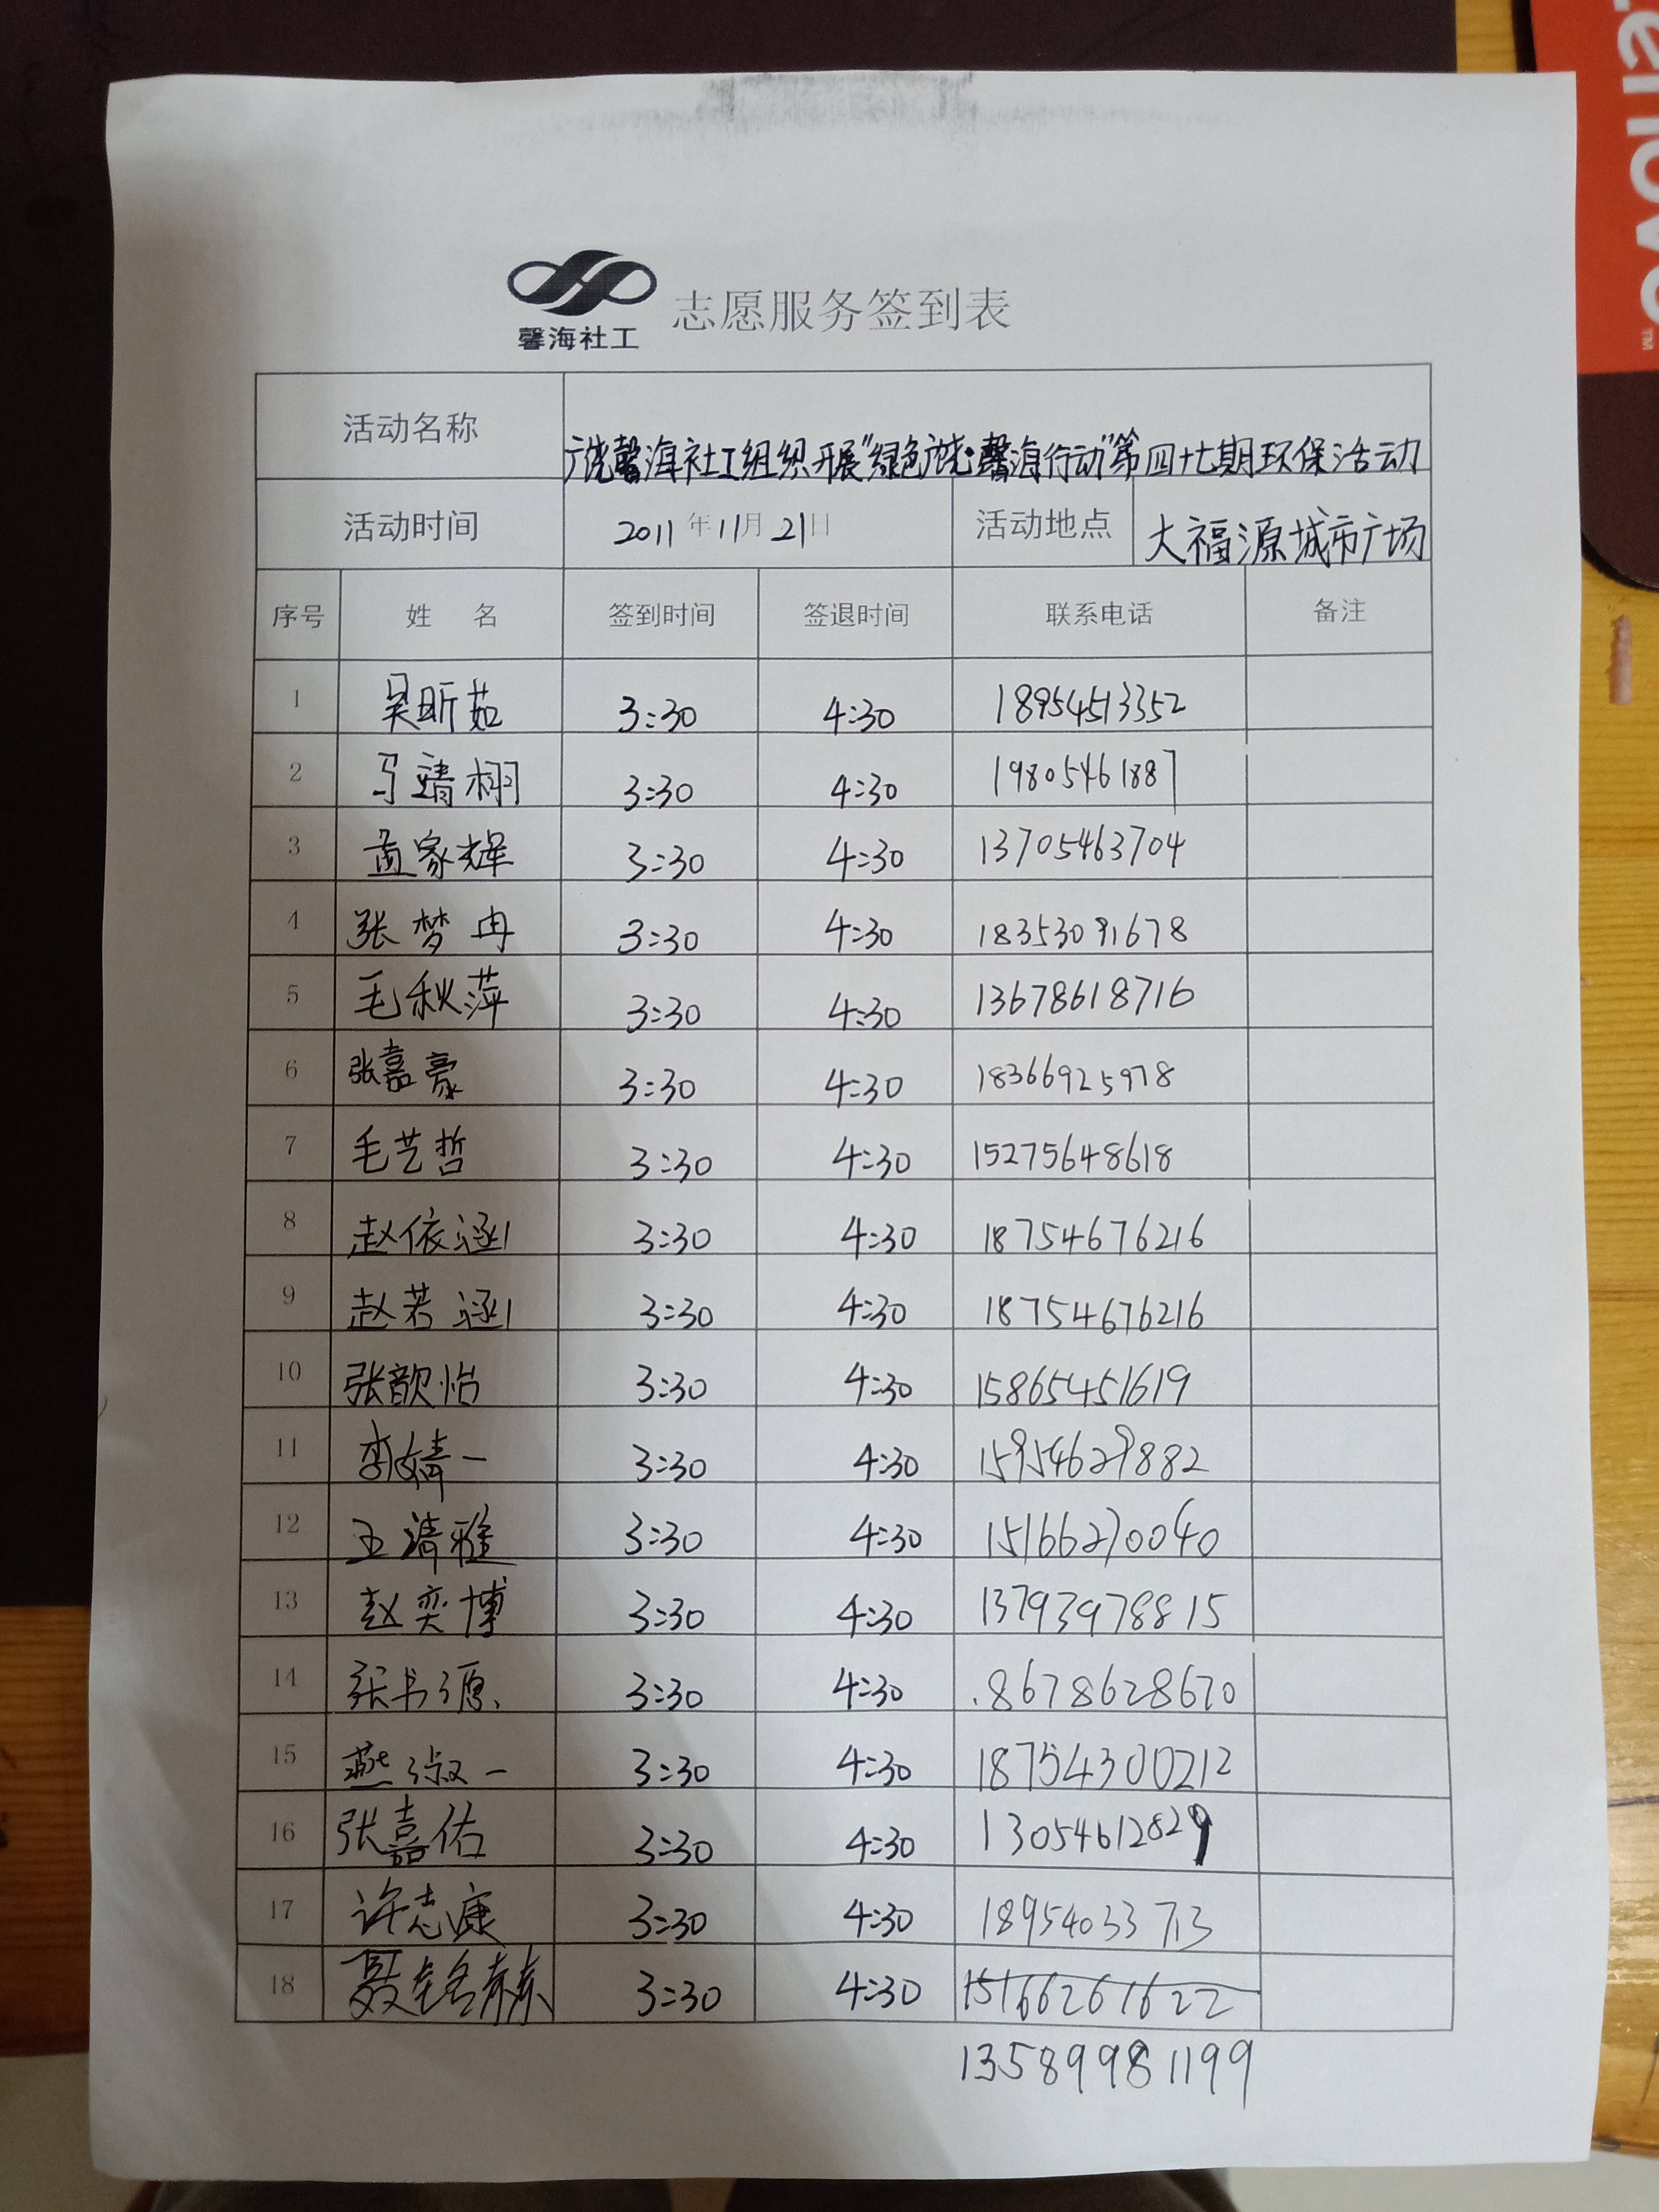 Lenovo
TM
馨海社工
志愿服务签到表
活动名称 广饶馨海社工组织开展“绿色广饶·馨海行动”第四十七期环保活动
活动时间 2011年11月21日 活动地点 大福源城市广场
序号 姓 名 签到时间 签退时间 联系电话 备注
1 吴昕茹 3:30 4:30 18954513352
2 马靖栩 3:30 4:30 19805461887
3 孟家辉 3:30 4:30 13705463704
4 张梦冉 3:30 4:30 18353091678
5 毛秋萍 3:30 4:30 13678618716
6 张嘉豪 3:30 4:30 18366925978
7 毛艺哲 3:30 4:30 15275648618
8 赵依涵 3:30 4:30 18754676216
9 赵若涵 3:30 4:30 18754676216
10 张歆怡 3:30 4:30 15865451619
11 李婧一 3:30 4:30 15954629882
12 王清雅 3:30 4:30 15166270040
13 赵奕博 3:30 4:30 13793978815
14 张书源 3:30 4:30 .8678628670
15 燕淑一 3:30 4:30 18754300212
16 张嘉佑 3:30 4:30 13054612829
17 许志康 3:30 4:30 18954033713
18 3:30 4:30 15166261622
13589981199